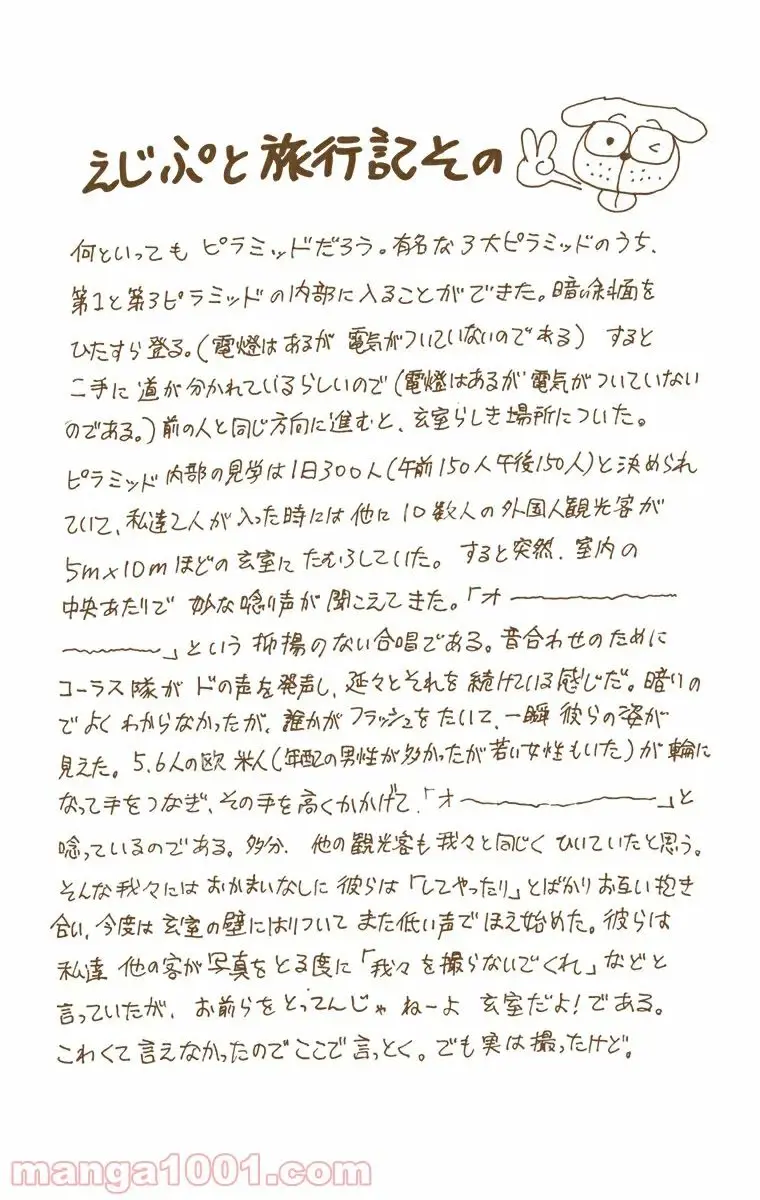 えじぷと旅行記その
何といっても ピラミッドだろう。有名な3大ピラミッドのうち、
第1と第3ピラミッドの内部に入ることができた。暗い斜面を
ひたすら登る。(電燈はあるが 電気がついていないのである) すると
二手に道が分かれているらしいので(電燈はあるが電気がついていない
のである。)前の人と同じ方向に進むと、玄室らしき場所についた。
ピラミッド内部の見学は1日300人(午前150人午後150人)と決められ
ていて、私達2人が入った時には他に10数人の外国人観光客が
5m×10mほどの玄室にたむろしていた。 すると突然、室内の
中央あたりで 妙な唸り声が聞こえてきた。「オ〜〜〜〜〜
〜〜〜」という抑揚のない合唱である。音合わせのために
コーラス隊がドの声を発声し、延々とそれを続けている感じだ。暗いの
でよくわからなかったが、誰かがフラッシュをたいて、一瞬彼らの姿が
見えた。5、6人の欧米人(年配の男性が多かったが若い女性もいた)が輪に
なって手をつなぎ、その手を高くかかげて、「オ〜〜〜〜〜〜」と
唸っているのである。多分、他の観光客も我々と同じくひいていたと思う。
そんな我々にはおかまいなしに彼らは「してやったり」とばかりお互い抱き
合い、今度は玄室の壁にはりついてまた低い声でほえ始めた。彼らは
私達 他の客が写真をとる度に「我々を撮らないでくれ」などと
言っていたが、お前らをとってんじゃねーよ 玄室だよ!である。
こわくて言えなかったのでここで言っとく。でも実は撮ったけど。
manga1001.com